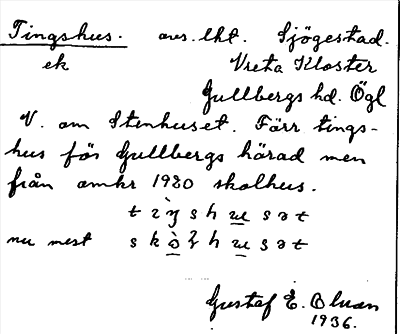 Tingshus. avs. lht. Sjögestad.
ek Vreta Kloster
Gullbergs hd. Ögl
V. om Stenhuset. Förr tings-
hus för Gullbergs härad men
från omkr 1920 skolhus.
nu mest
Gustaf E. Oluan
1936.